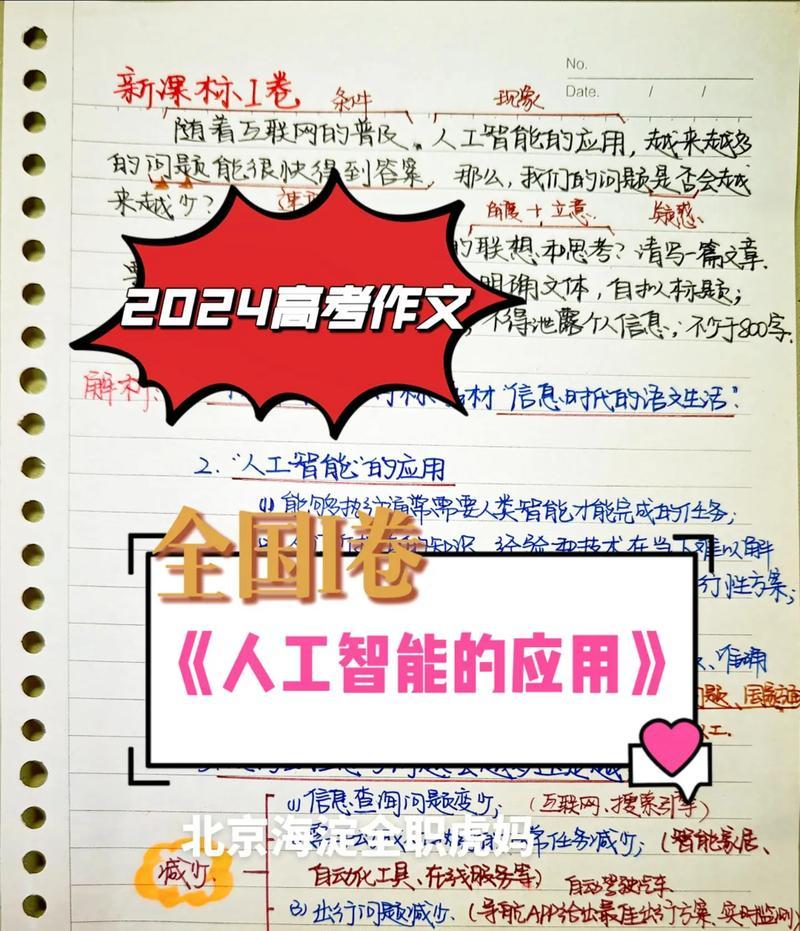 No.
Date. / /
新课标I卷
条件
现象
随着互联网的普及、人工智能的应用,越来越多
的问题能很快得到答案。那么,我们的问题是否会越
来越少?
角度+立意
疑惑
的联想和思考?请写一篇文章.
明确文体,自拟标题;
2024高考作文
不得泄露个人信息;不少于800字.
解析:
材"信息时代的语文生活".
2."人工智能"的应用
(1)能够执行通常需要人类智能才能完成的任务;
经验和技术在当下难以解
全国I卷
行性方案;
《人工智能的应用》
、准确
(1)信息查询问题变少;(互联网、搜索引擎)
北京海淀全职虎妈
常任务减少;(智能家居、
减少
自动化工具、在线服务等)自动驾驶汽车
(3)出行问题减少.(导航APP给出最佳出行方案、实时监测)